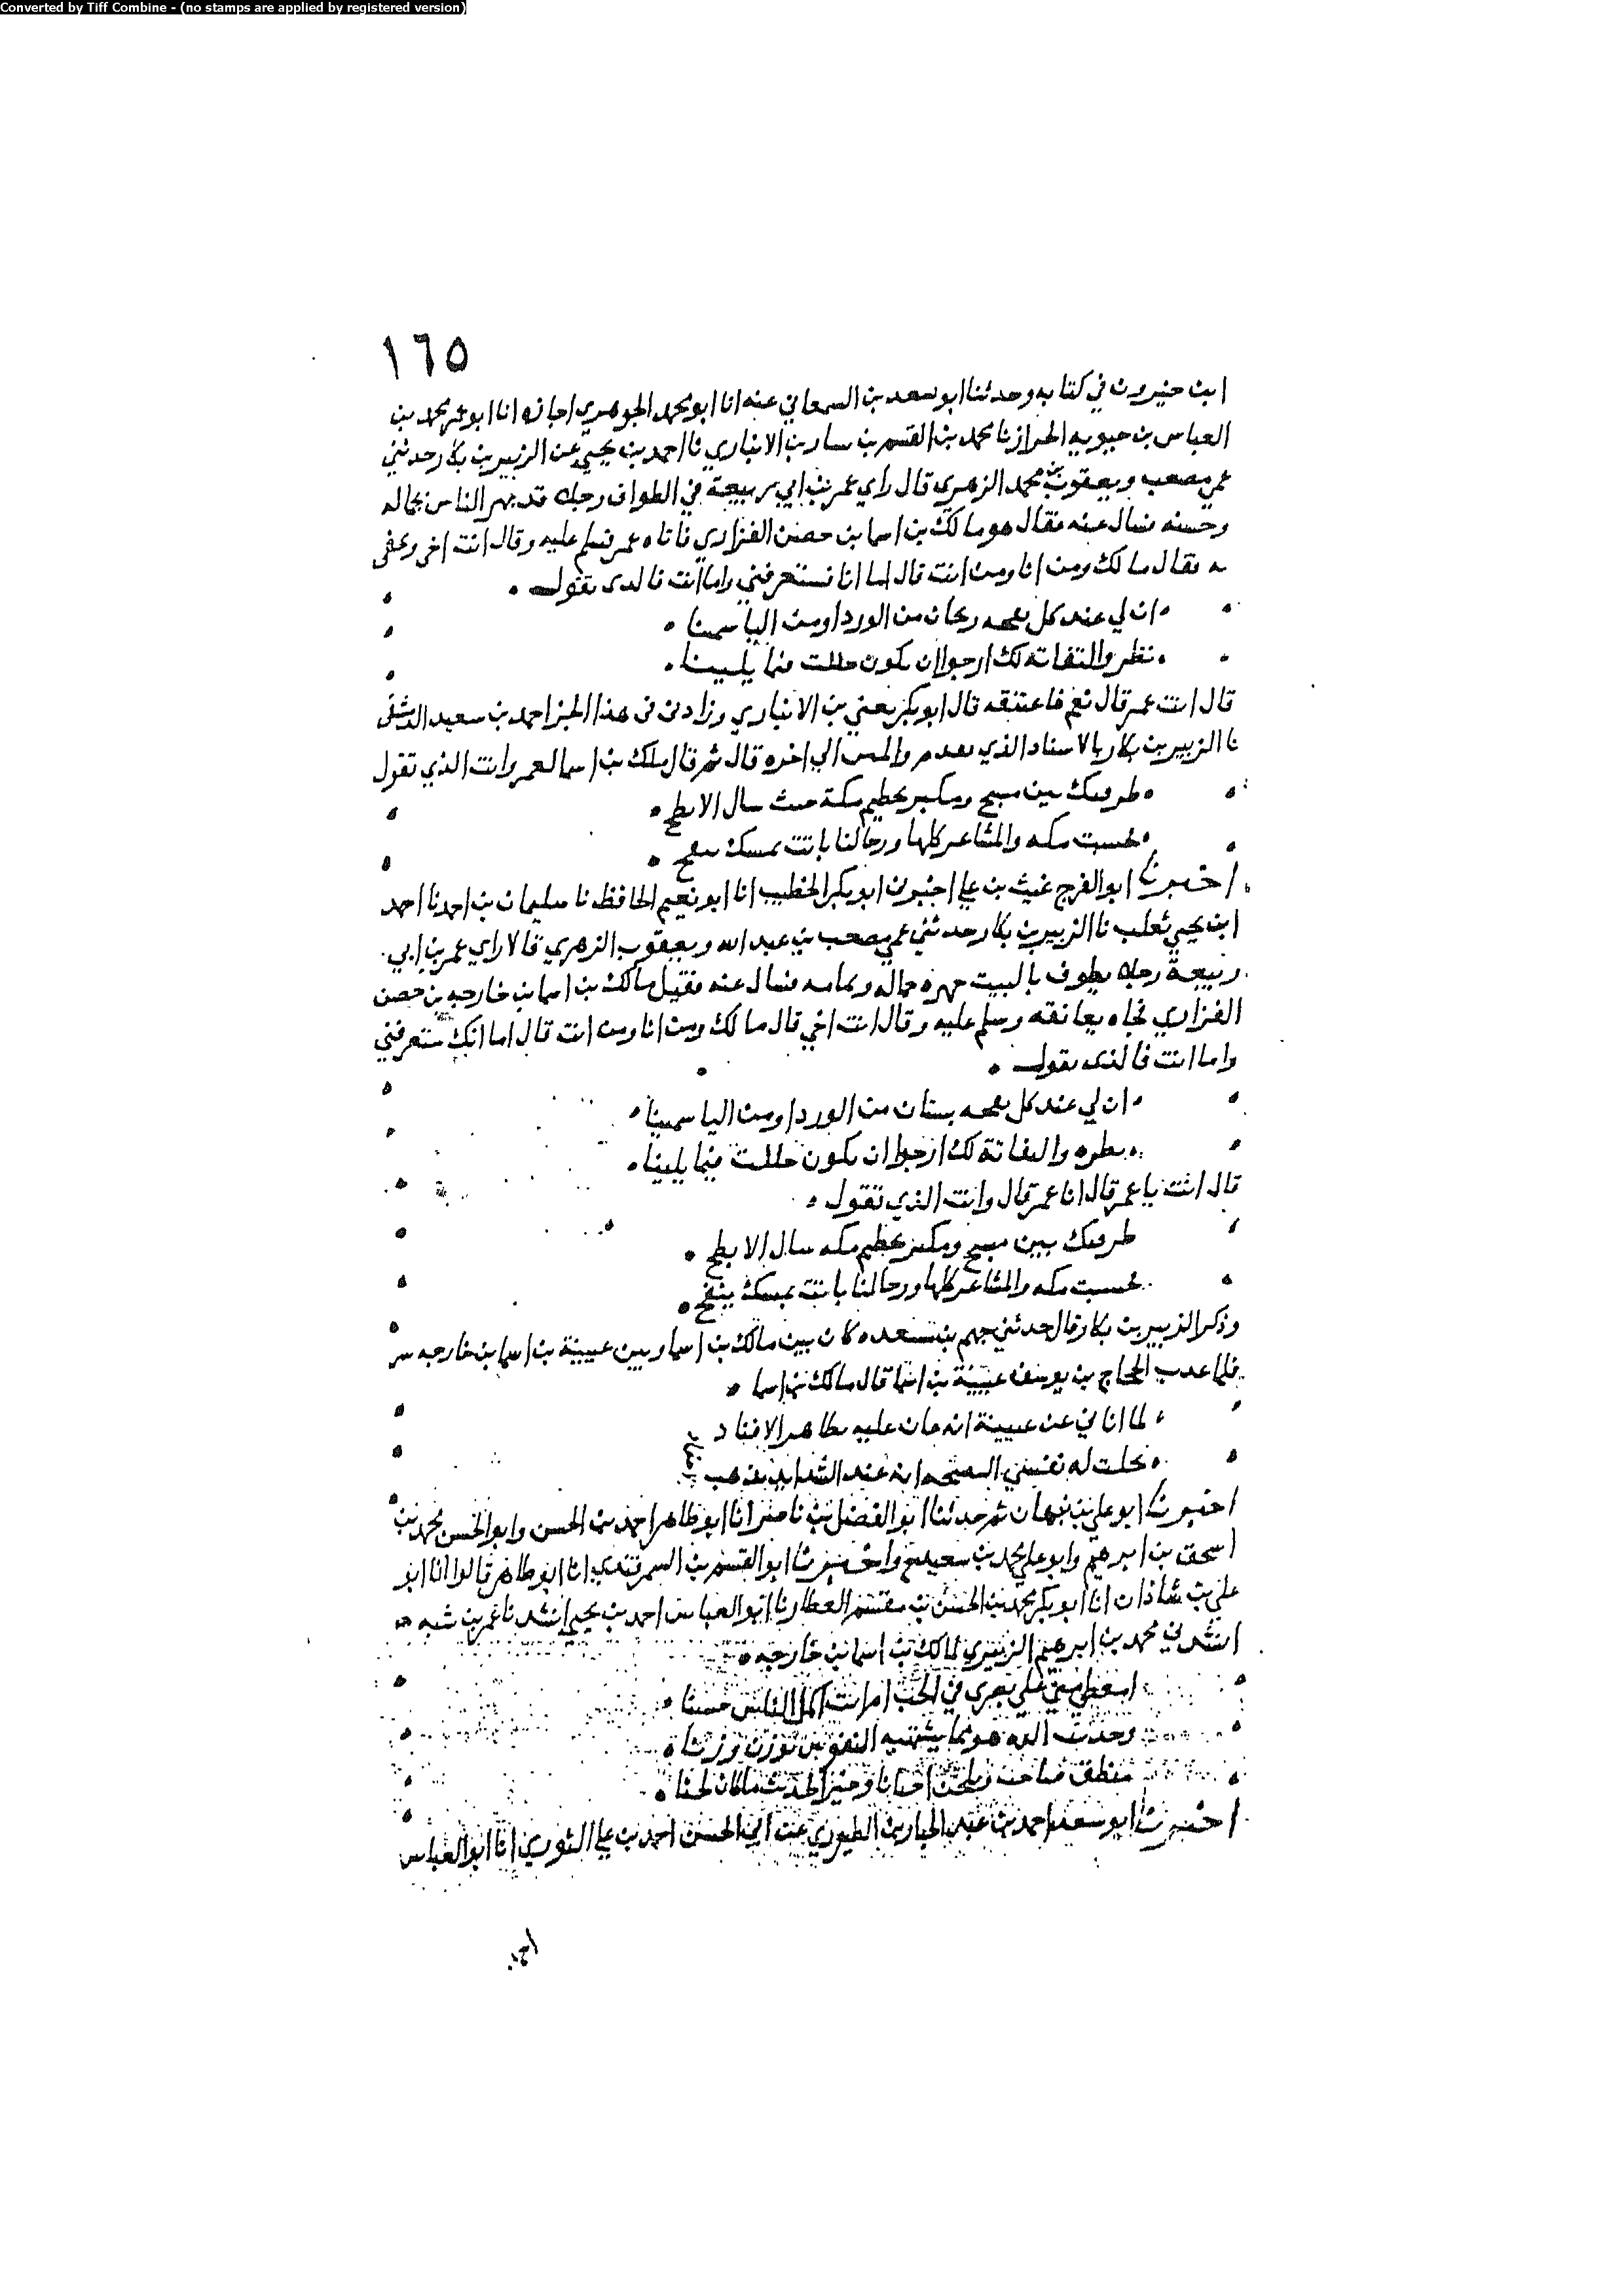 Converted by Tiff Combine - (no stamps are applied by registered version)
١٦٥
ابن خيرون في كتابه وحدثنا ابو سعد بن السمعاني عنه انا ابو محمد الجوهري اجازه انا ابو عمر محمد بن
العباس بن حيويه الخراز نا محمد بن القسم بن سار بن الانباري نا احمد بن يحيى عن الزبير بن بكار حدثني
عمي مصعب ويعقوب بن محمد الزهري قال راي عمر بن ابي ربيعة في الطواف رجلا قد بهر الناس بجماله
وحسنه فسال عنه فقال هو مالك بن اسما بن حصن الفزاري فاتاه عمر فسلم عليه وقال انت اخي
فقال مالك ومن انا ومن انت قال اما انا فستعرفني واما انت فالدى تقول
ان لي عند كل نفحه ريحان من الورد او من الياسمينا
نظر والتفاته لك ارجوا ان تكون حللت فيما يلينا
قال انت عمر قال نعم فاعتنقه قال ابو بكر يعني بن الانباري وزادني في هذا الخبر احمد بن سعيد الدمشقي
نا الزبير بن بكار بالاسناد الذي تقدم الى اخره قال ثم قال ملك بن اسما لعمر وانت الذي تقول
طرقتك بين مسبح ومكبر بحطيم مكة حيث سال الابطح
فحسبت مكه والمشاعر كلها ورحالنا باتت بمسك تنفح
اخبرنا ابو الفرج غيث بن علي اخبرني ابو بكر الخطيب انا ابو نعيم الحافظ نا سليمان بن احمد نا احمد
ابن يحيى ثعلب نا الزبير بن بكار حدثني عمي مصعب بن عبد الله ويعقوب الزهري قالا راي عمر بن ابي
ربيعة رجلا يطوف بالبيت بهره جماله وتمامه فسال عنه فقيل مالك بن اسما بن خارجه بن حصن
الفزاري فجاه يعانقه وسلم عليه وقال انت اخي قال مالك ومن انا ومن انت قال اما انك ستعرفني
واما انت فالذى تقول
ان لي عند كل نفحه بستان من الورد او من الياسمينا
نظره والتفاتة لك ارجوا ان تكون حللت فيما يلينا
قال انت يا عمر قال انا عمر قال وانت الذي تقول
طرقتك بين مسبح ومكبر بحطيم مكه سال الابطح
فحسبت مكه والمشاعر كلها ورحالنا باتت بمسك ينفح
وذكر الزبير بن بكار قال حدثني جهم بن مسعده كان بين مالك بن اسما وبين عيينة بن اسما بن خارجه سر
فلما عدب الحجاج بن يوسف عيينة بن اسما قال مالك بن اسما
لما اتاني عن عيينة انه عليه تظاهر الاقياد
نخلت له نفسي النصيحه انه عند الشدايد تذهب
اخبرنا ابو علي بن نبهان ثم حدثنا ابو الفضل بن ناصر انا ابو طاهر احمد بن الحسن وابو الحسن محمد بن
اسحق بن ابرهيم وابو علي محمد بن سعيد ح واخبرنا ابو القسم بن السمرقندي انا ابو طاهر قالوا انا ابو
علي بن شاذان انا ابو بكر محمد بن الحسن بن مقسم العطار نا ابو العباس احمد بن يحيى انشدنا عمر بن شبه
انشدني محمد بن ابرهيم الزبيري لمالك بن اسما بن خارجه
امغطى مني على بصرى في الحب ام انت اكمل الناس حسنا
وحديث الده هو مما يشتهيه النفوس يوزن وزنا
منطق صاحب وتلحن احيانا وخير الحديث ما كان لحنا
اخبرنا ابو سعد احمد بن عبد الجبار بن الطيوري عن ابي الحسن احمد بن علي الثوري انا ابو العباس